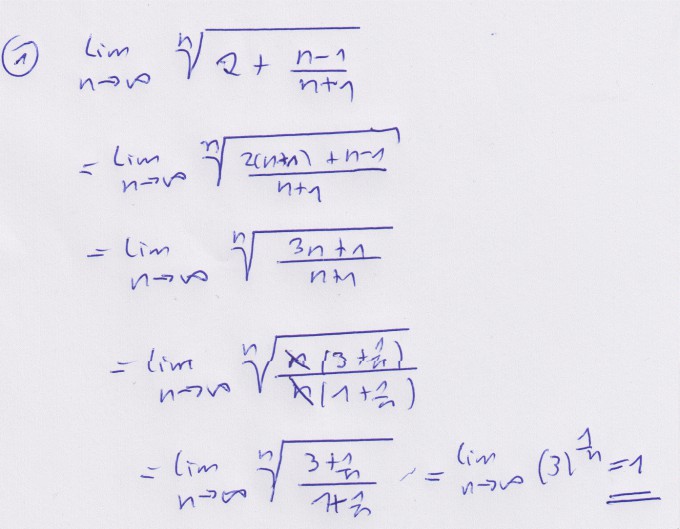 ① lim n→∞ ⁿ√(2 + (n-1)/(n+1))
= lim n→∞ ⁿ√((2(n+1) + n-1)/(n+1))
= lim n→∞ ⁿ√((3n+1)/(n+1))
= lim n→∞ ⁿ√((n(3+1/n))/(n(1+1/n)))
= lim n→∞ ⁿ√((3+1/n)/(1+1/n)) = lim n→∞ (3)^(1/n) = 1